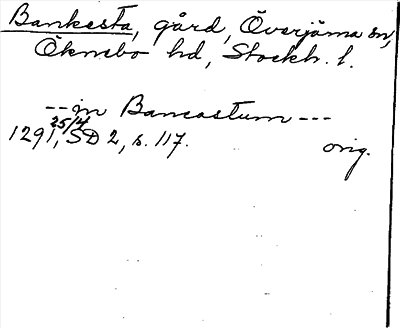 Bankesta, gård, Överjärna sn,
Öknebo hd, Stockh. l.
--- in Bancastum ---
25/4
1291, SD 2, s. 117. orig.